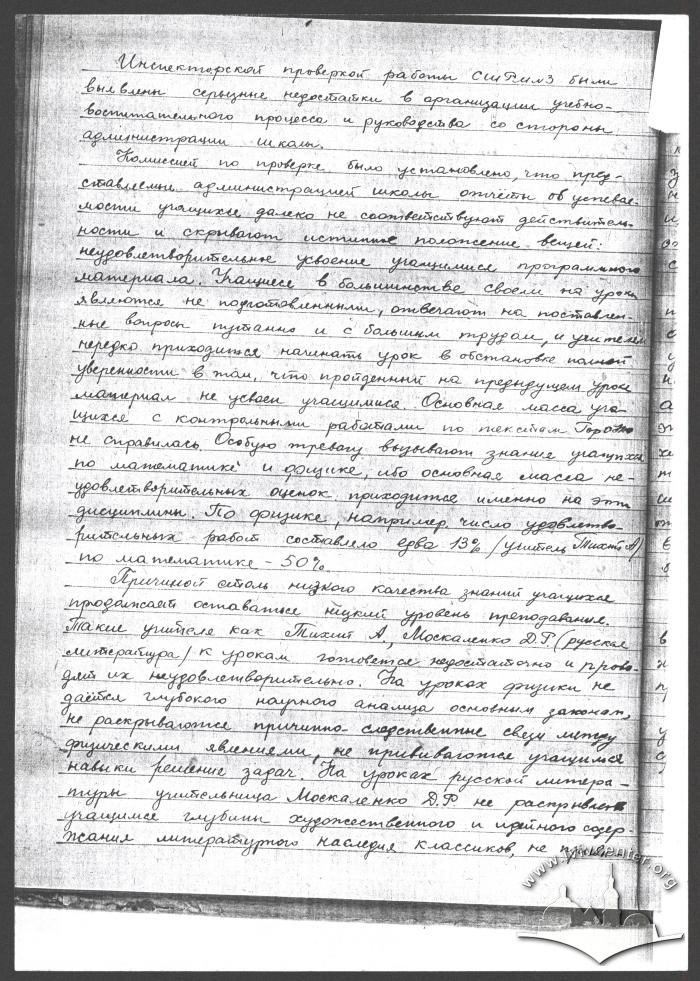 Инспекторской проверкой работы СшРм№3 были
выявлены серьезные недостатки в организации учебно-
воспитательного процесса и руководства со стороны
администрации школы.
Комиссией по проверке было установлено, что пред-
ставляемые администрацией школы отчёты об успевае-
мости учащихся далеко не соответствуют действитель-
ности и скрывают истинное положение вещей:
неудовлетворительное усвоение учащимися программного
материала. Учащиеся в большинстве своем на уроки
являются не подготовленными, отвечают на поставлен-
ные вопросы путанно и с большим трудом, и учителям
нередко приходится начинать урок в обстановке полной
уверенности в том, что пройденный на предыдущем уроке
материал не усвоен учащимися. Основная масса уча-
щихся с контрольными работами по текстам ГорОНО
не справилась. Особую тревогу вызывают знания учащихся
по математике и физике, ибо основная масса не-
удовлетворительных оценок приходится именно на эти
дисциплины. По физике, например, число удовлетво-
рительных работ составило едва 13% /учитель Тихит А/
по математике - 50%.
Причиной столь низкого качества знаний учащихся
продолжает оставаться низкий уровень преподавания.
Такие учителя как Тихит А, Москаленко Д.Р. (русская
литература/ к урокам готовятся недостаточно и прово-
дят их неудовлетворительно. На уроках физики не
даётся глубокого научного анализа основным законам,
не раскрываются причинно-следственные связи между
физическими явлениями, не прививаются учащимся
навыки решение задач. На уроках русской литера-
туры учительница Москаленко Д.Р. не раскрывает
учащимся глубины художественного и идейного содер-
жания литературного наследия классиков, не
www.lvivcenter.org